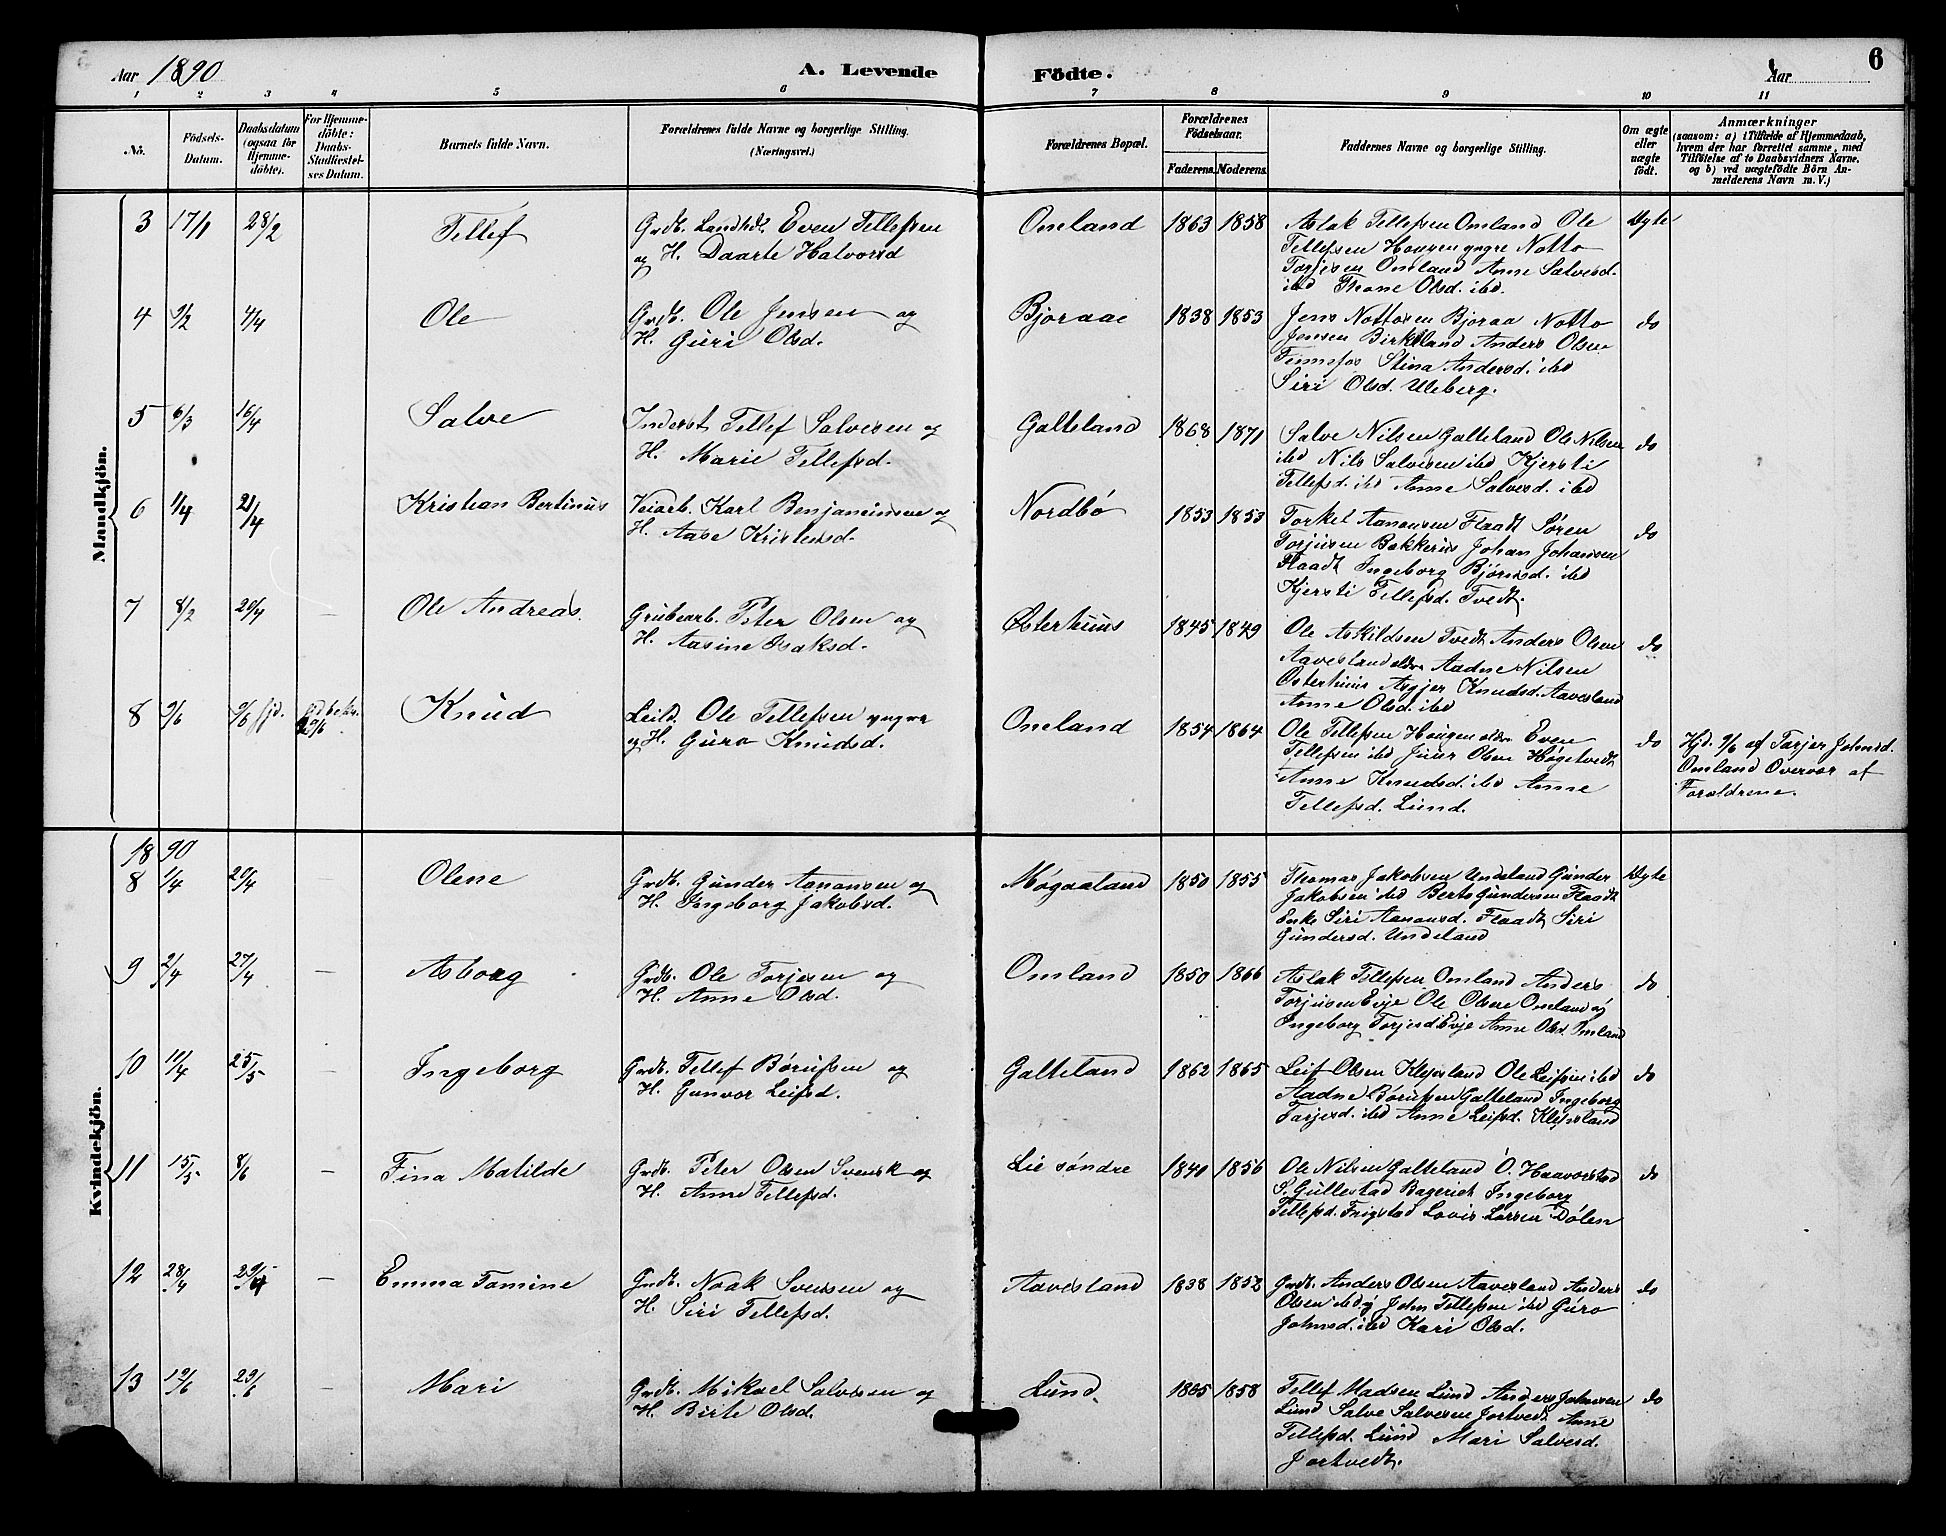 6
Aar 1890
A. Levende Födte.
Aar
1 2 3 4 5 6 7 8 9 10 11
No.
Födsels-
Datum.
Daabsdatum
(ogsaa for
Hjemme-
döbte).
For Hjemme-
döbte:
Daabs-
Stadfæstel-
ses Datum.
Barnets fulde Navn.
Forældrenes fulde Navne og borgerlige Stilling.
(Næringsvei.)
Forældrenes Bopæl.
Forældrenes
Födselsaar.
Faderens. Moderens.
Faddernes Navne og borgerlige Stilling.
Om ægte
eller
uægte
födt.
Anmærkninger
(saasom: a) i Tilfælde af Hjemmedaab,
hvem der har forrettet samme, med
Tilföielse af to Daabsvidners Navne,
og b) ved uægtefödte Börn An-
melderens Navn m. V.)
Mandkjön.
3 17/1 28/2 Tellef
Grdb. Landhdl. Even Tellefsen
og H. Daarte Halvorsd
Omland 1863 1858
Aslak Tellefsen Omland Ole
Tellefsen Hougen yngre Notto
Torjesen Omland Anne Salvesd.
ibd Thone Olsd. ibd.
Ægte
4 9/2 4/4 Ole
Grdb. Ole Jensen og
H. Guri Olsd.
Bjoraae 1838 1853
Jens Nottosen Bjoraa Notto
Jensen Birkeland Anders Olsen
Finnsfos Stina Andersd. ibd
Siri Olsd. Uleberg.
do
5 6/3 16/4 Salve
Inderst Tellef Salvesen og
H. Marie Tellefsd.
Galteland 1868 1871
Salve Nilsen Galteland Ole Nilsen
ibd Nils Salvesen ibd Kjersti
Tellefsd. ibd Anne Salvesd. ibd
do
6 1/4 21/4 Kristian Bertinus
Veiarb. Karl Benjaminsen og
H. Aase Kristensd.
Nordbø 1853 1853
Torkel Aanonsen Flaadt Søren
Torjusen Bakkerus Johan Johansen
Flaadt Ingeborg Bjørnsd. ibd
Kjersti Tellefsd. Tvedt.
do
7 8/2 20/4 – Ole Andreas.
Grubearb. Peter Olsen og
H. Aasine Isaksd.
Østerhuus 1845 1849
Ole Askildsen Tvedt Anders Olsen
Aavesland ældre Aadne Nilsen
Osterhuus Asgjer Knudsd. Aavesland
Anne Olsd. ibd
do
8 9/6 9/6 hjd. 29/6 Knud
Leild. Ole Tellefsen yngre
og H. Guro Knudsd.
Omland 1854 1864
Ole Tellefsen Hougen ældre Even
Tellefsen ibd Juur Olsen Høgetvedt
Anne Knudsd. ibd Anne
Tellefsd. Lund.
do
Hjd. 9/6 af Tarjer Johnsd.
Omland Overvær af
Forældrene.
Kvindekjön.
1890
8 1/4 20/4 – Olene
Grdb. Gunder Aanonsen og
H. Ingeborg Jakobsd.
Møgaaland 1850 1855
Thomas Jakobsen Undeland Gunder
Jakobsen ibd Berte Gundersen Flaadt
Enke Siri Aanonsd. Flaadt Siri
Gundersd. Undeland
Ægte
9 2/4 27/4 – Asborg
Grdb. Ole Torjesen og
H. Anne Olsd.
Omland 1850 1866
Aslak Tellefsen Omland Anders
Torjusen Evje Ole Olsen Omland og
Ingeborg Torjesd Evje Anne Olsd. Omland
do
10 10/4 25/5 – Ingeborg
Grdb. Tellef Børufsen og
H. Gunvor Leifsd.
Galteland 1862 1865
Leif Olsen Klepsland Ole Leifsen ibd
Aadne Børufsen Galteland Ingeborg
Tarjesd. ibd Anne Leifsd. Klepsland
do
11 15/5 8/6 – Fina Matilde
Grdb. Peter Olsen Svensk og
H. Anne Tellefsd.
Lie søndre 1840 1856
Ole Nilsen Galteland O. Haavorstad
S. Gullestad Bageriet Ingeborg
Tellefsd. Frigstad Lovis Larsen Dølen
do
12 28/4 29/ – Emma Tomine
Grdb. Noak Svensen og
H. Siri Tellefsd.
Aavesland 1838 1852
Grdb. Anders Olsen Aavesland Anders
Olsen ibd John Tellefsen ibd Guro
Johnsd. ibd Kari Olsd.
do
13 12/6 29/6 – Mari
Grdb. Mikael Salvesen og
H. Birte Olsd.
Lund. 1855 1858
Tellef Madsen Lund Anders Johnsen
Lund Salve Salvesen Jortvedt Anne
Tellefsd. Lund Mari Salvesd.
Jortvedt.
do